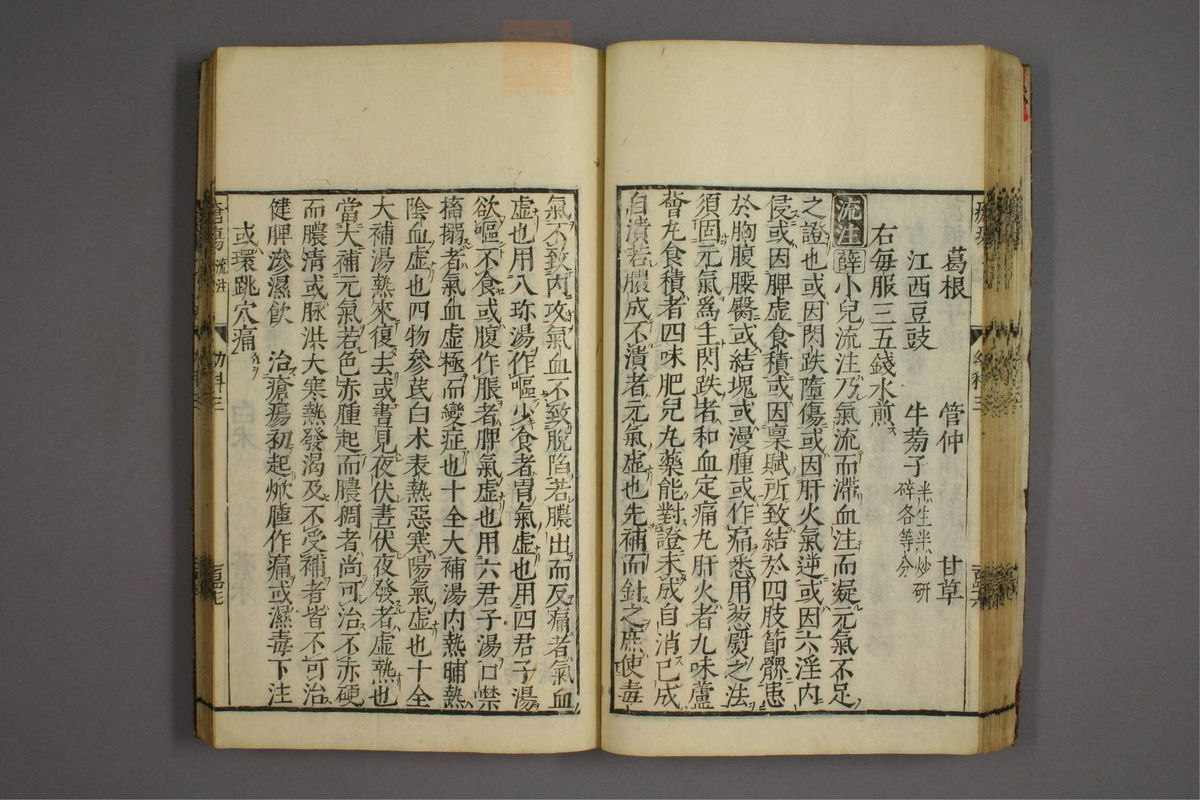 葛根　管仲　甘草
江西豆豉　牛蒡子半生半炒研碎各等分
右每服三五錢水煎
流注　薛　小兒流注乃氣流而滯血注而凝元氣不足
之證也或因閃跌墮傷或因肝火氣逆或因六淫內
侵或因脾虛食積或因稟賦所致結於四肢節髎患
於胸腹腰臀或結塊或漫腫或作痛悉用葱熨之法
須固元氣爲主閃跌者和血定痛丸肝火者九味蘆
薈丸食積者四味肥兒丸藥能對證未成自消已成
自潰若膿成不潰者元氣虛也先補而針之庶使毒
氣不致內攻氣血不致脫陷若膿出而反痛者氣血
虛也用八珍湯作嘔少食者胃氣虛也用四君子湯
欲嘔不食或腹作脹者脾氣虛也用六君子湯口禁
搐搦者氣血虛極而變症也十全大補湯內熱晡熱
陰血虛也四物參茋白术表熱惡寒陽氣虛也十全
大補湯熱來復去或晝見夜伏晝伏夜發者虛熱也
當大補元氣若色赤腫起而膿稠者尚可治不赤硬
而膿清或脉洪大寒熱發渴及不受補者皆不可治
健脾滲濕飲　治瘡瘍初起焮腫作痛或濕毒下注
或環跳穴痛
瘡瘍　流注　幼科三